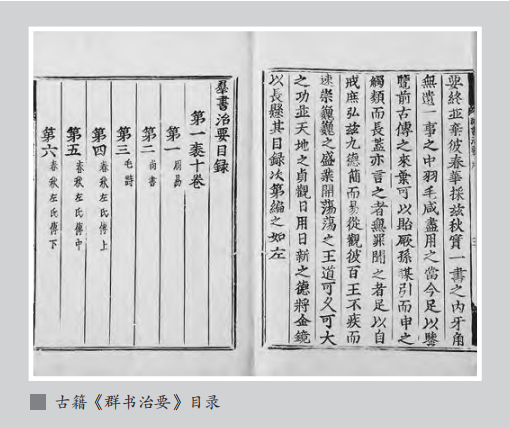 要終並棄彼春華採茲秋實一書之內牙角
無遺一事之中羽毛咸盡用之當今足以鑒
覽前古傳之來葉可以貽厥孫謀引而申之
觸類而長蓋亦言之者無罪聞之者足以自
戒庶弘茲九德簡而易從觀彼百王不疾而
速崇巍巍之盛業開蕩蕩之王道可久可大
之功並天地之貞觀日用日新之德將金鏡
以長懸其目録次第編之如左
羣書治要目録
第一袠十卷
第一 周易
第二 尚書
第三 毛詩
第四 春秋左氏傳上
第五 春秋左氏傳中
第六 春秋左氏傳下
古籍《群书治要》目录